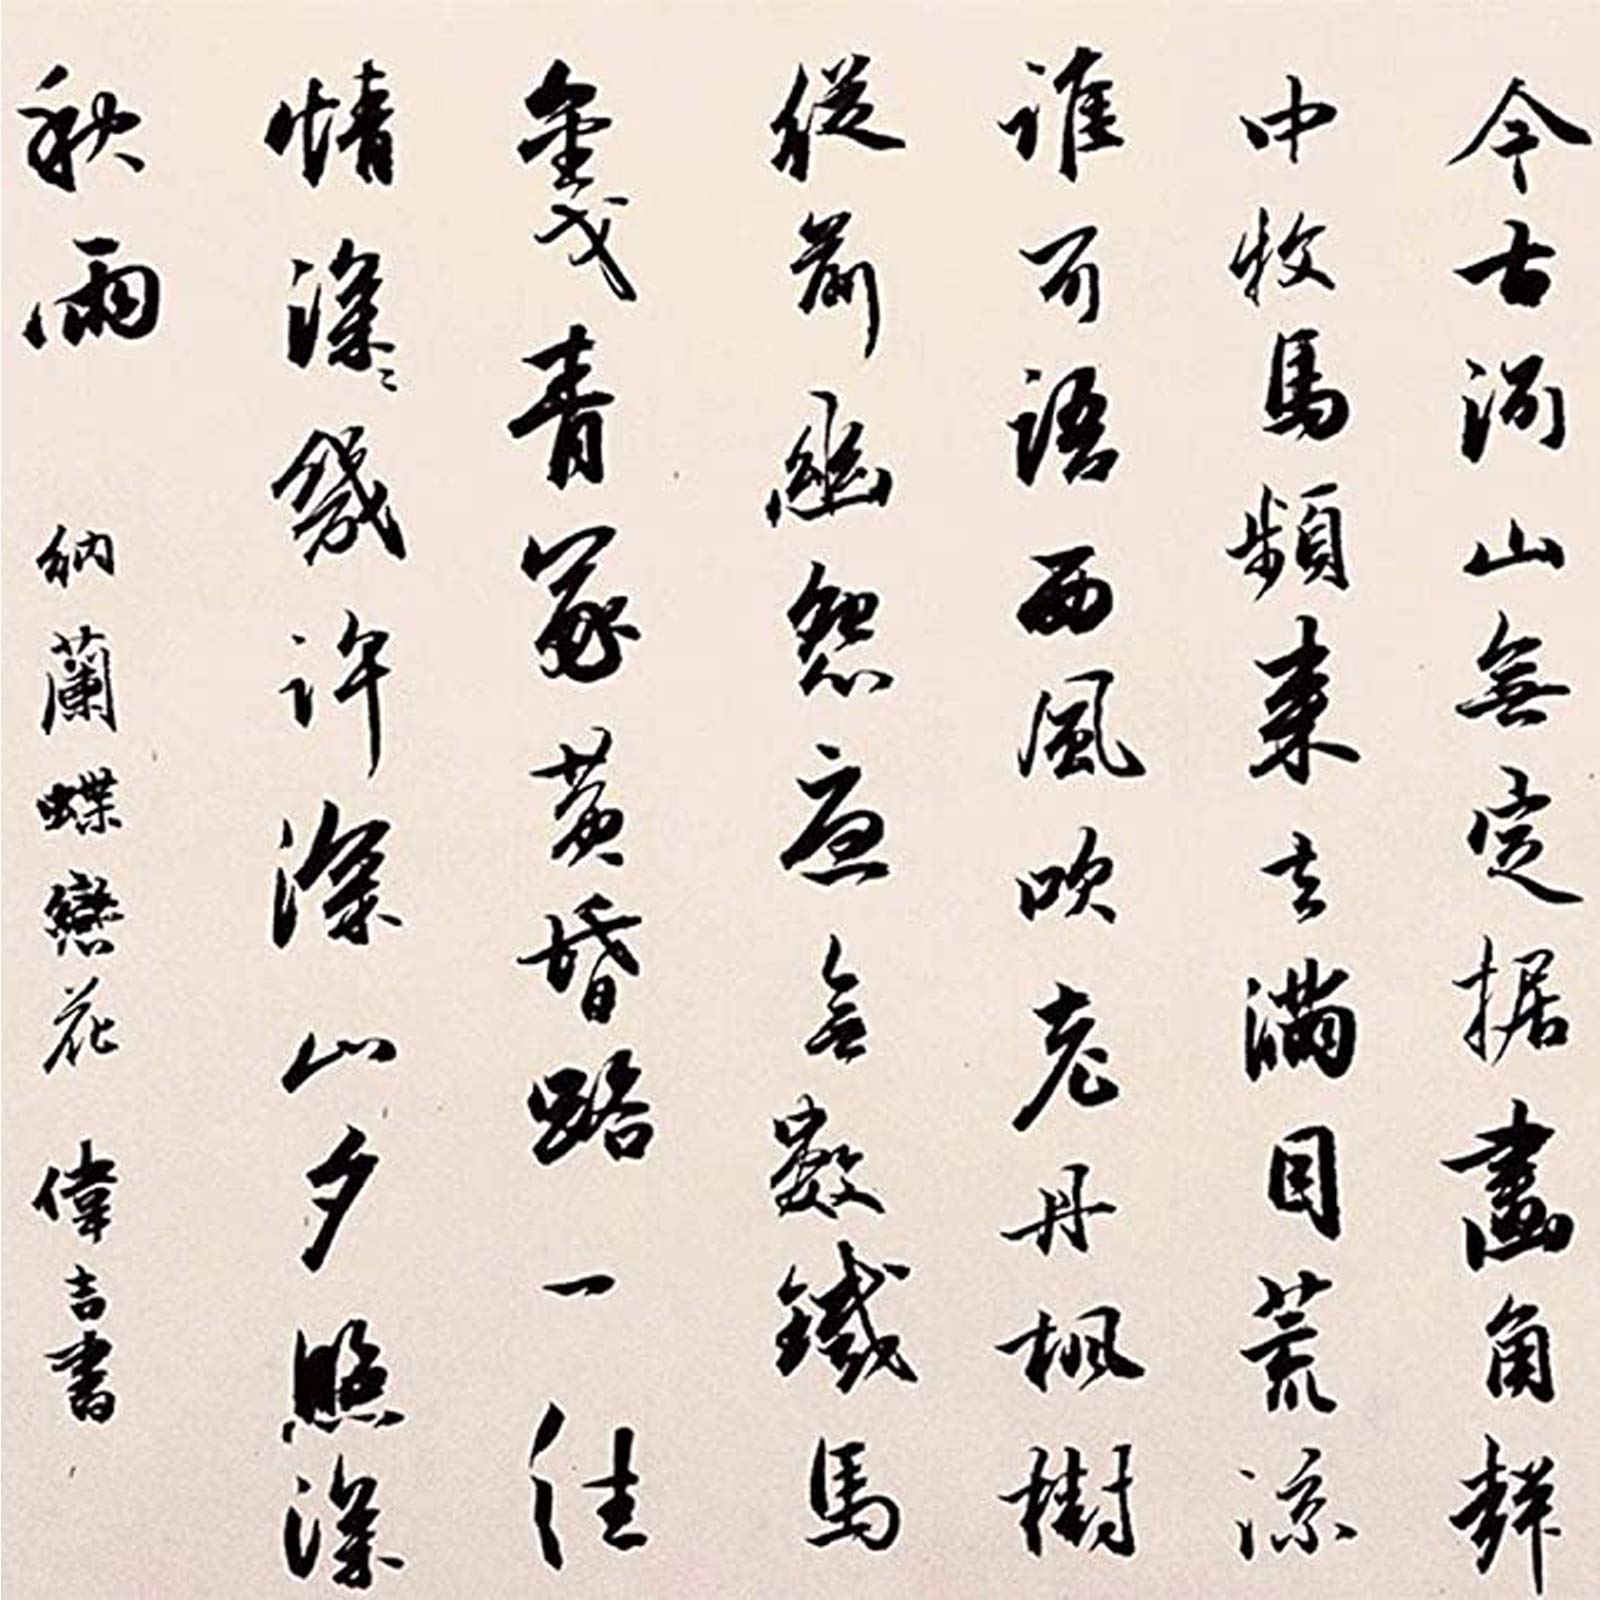 今古河山無定据畫角聲
中牧馬頻来去滿目荒涼
誰可語西風吹老丹楓樹
從前幽怨應無數鐵馬
金戈青冢黃昏路一往
情深〻幾許深山夕照深
秋雨 納蘭蝶戀花 偉吉書